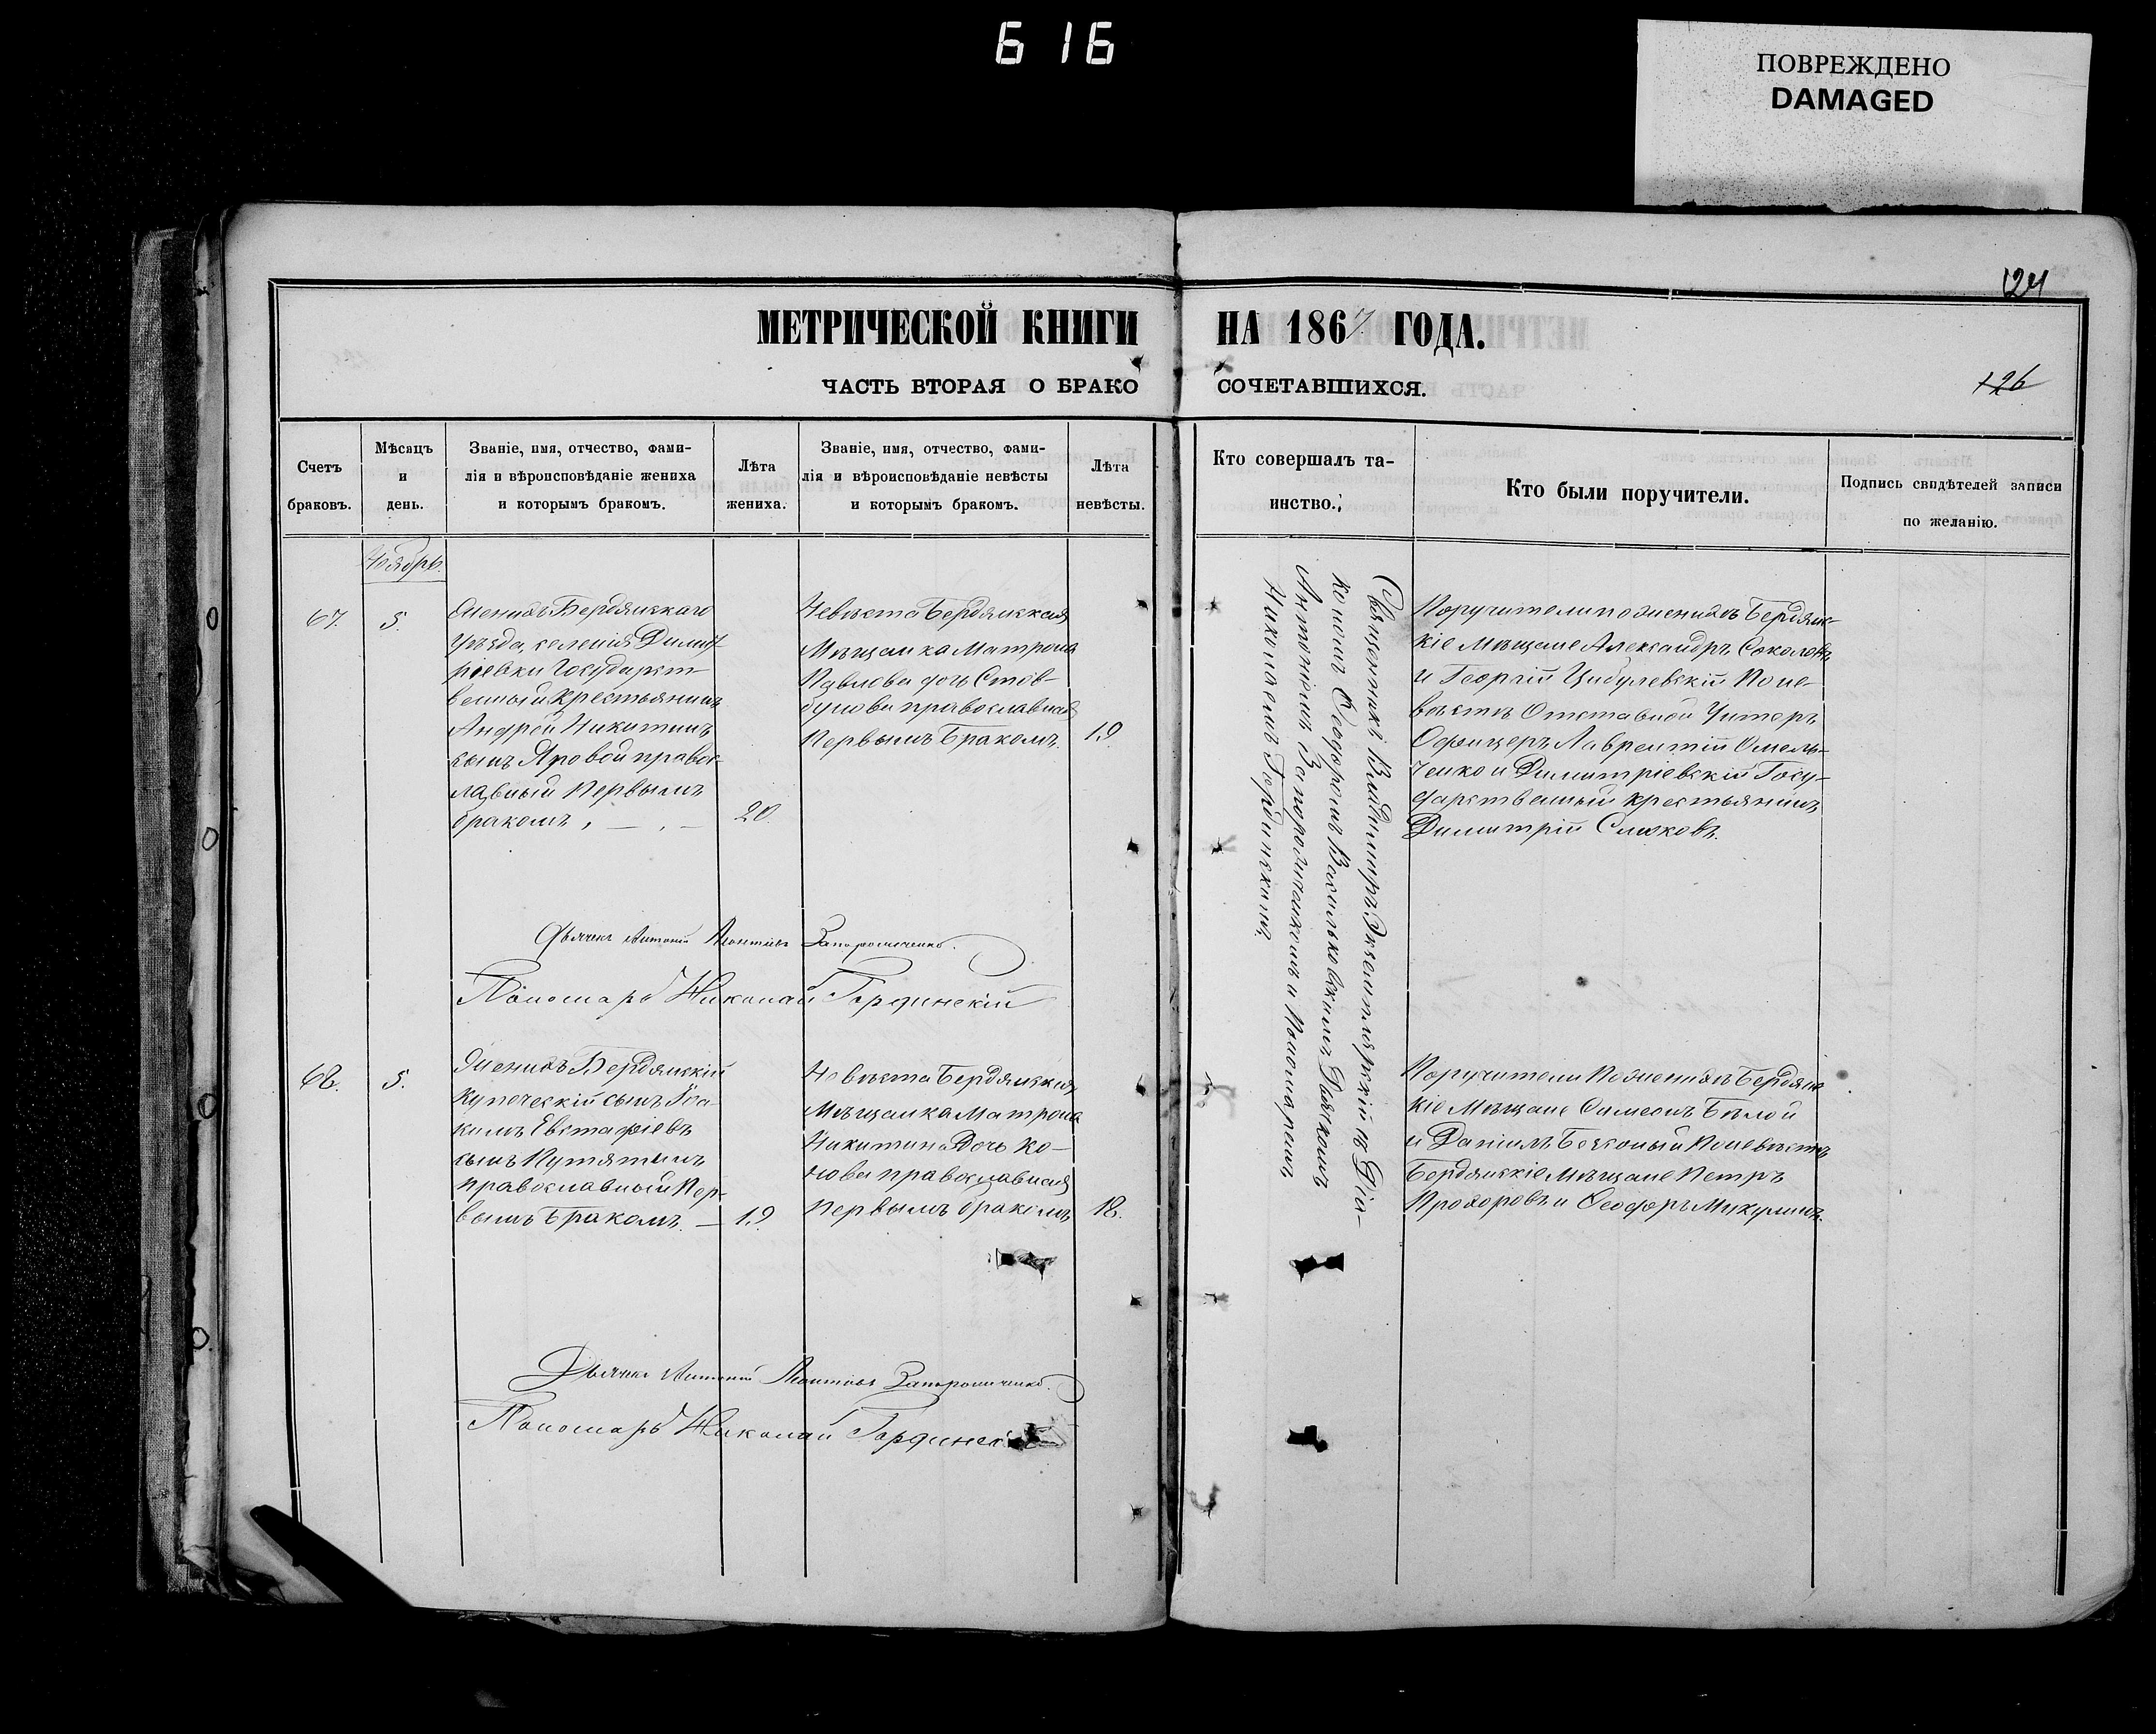 616
ПОВРЕЖДЕНО
DAMAGED
124
МЕТРИЧЕСКОЙ КНИГИ НА 1867 ГОДА.
ЧАСТЬ ВТОРАЯ О БРАКОСОЧЕТАВШИХСЯ.
126
Счетъ браковъ.
Мѣсяцъ и день.
Званіе, имя, отчество, фами-
лія и вѣроисповѣданіе жениха
и которымъ бракомъ.
Лѣта жениха.
Званіе, имя, отчество, фами-
лія и вѣроисповѣданіе невѣсты
и которымъ бракомъ.
Лѣта невѣсты.
Кто совершалъ та-
инство.
Кто были поручители.
Подпись свидѣтелей записи
по желанію.
Ноябрь.
67.
5.
Женихъ Бердянскаго
Уѣзда, селенія Димит
ріевки Государст-
венный крестьянинъ
Андрей Никитинъ
сынъ Яровой правос-
лавный Первымъ
бракомъ,
20.
Невѣста Бердянская
Мѣщанка Матрона
Павлова дочь Стов-
бунова православная
Первымъ Бракомъ.
19.
Священникъ Владимиръ Экземплярскій съ Діа-
кономъ Ѳеодоромъ Васильковскимъ Дьячкомъ
Антоніемъ Запорожченкомъ и Пономаремъ
Николаемъ Гординскимъ.
Поручители по женихѣ Бердянс-
кіе Мѣщане Александръ Соколовъ
и Георгій Цибулевскій По не-
вѣстѣ Отставной Унтеръ
Офицеръ Лаврентій Омель-
ченко и Димитріевскій Госу-
дарственный крестьянинъ
Димитрій
Дьячекъ Антоній Леонтіевъ Запорожченко.
Пономарь Николай Гординскій
68.
5.
Женихъ Бердянскій
Купеческій сынъ Іоа-
кимъ Евстафіевъ
сынъ Путятинъ
православный Пер-
вымъ Бракомъ.
19.
Невѣста Бердянская
Мѣщанка Матрона
Никитина Дочь Ко-
нова православная
Первымъ бракомъ
18.
Поручители По женихѣ Бердянс
кіе Мѣщане Симеонъ Бѣлой
и Даніилъ По невѣстѣ
Бердянскіе Мѣщане Петръ
Прохоровъ и Ѳеодоръ Микулинъ.
Дьячекъ Антоній Леонтіевъ Запорожченко.
Пономарь Николай Гординскій